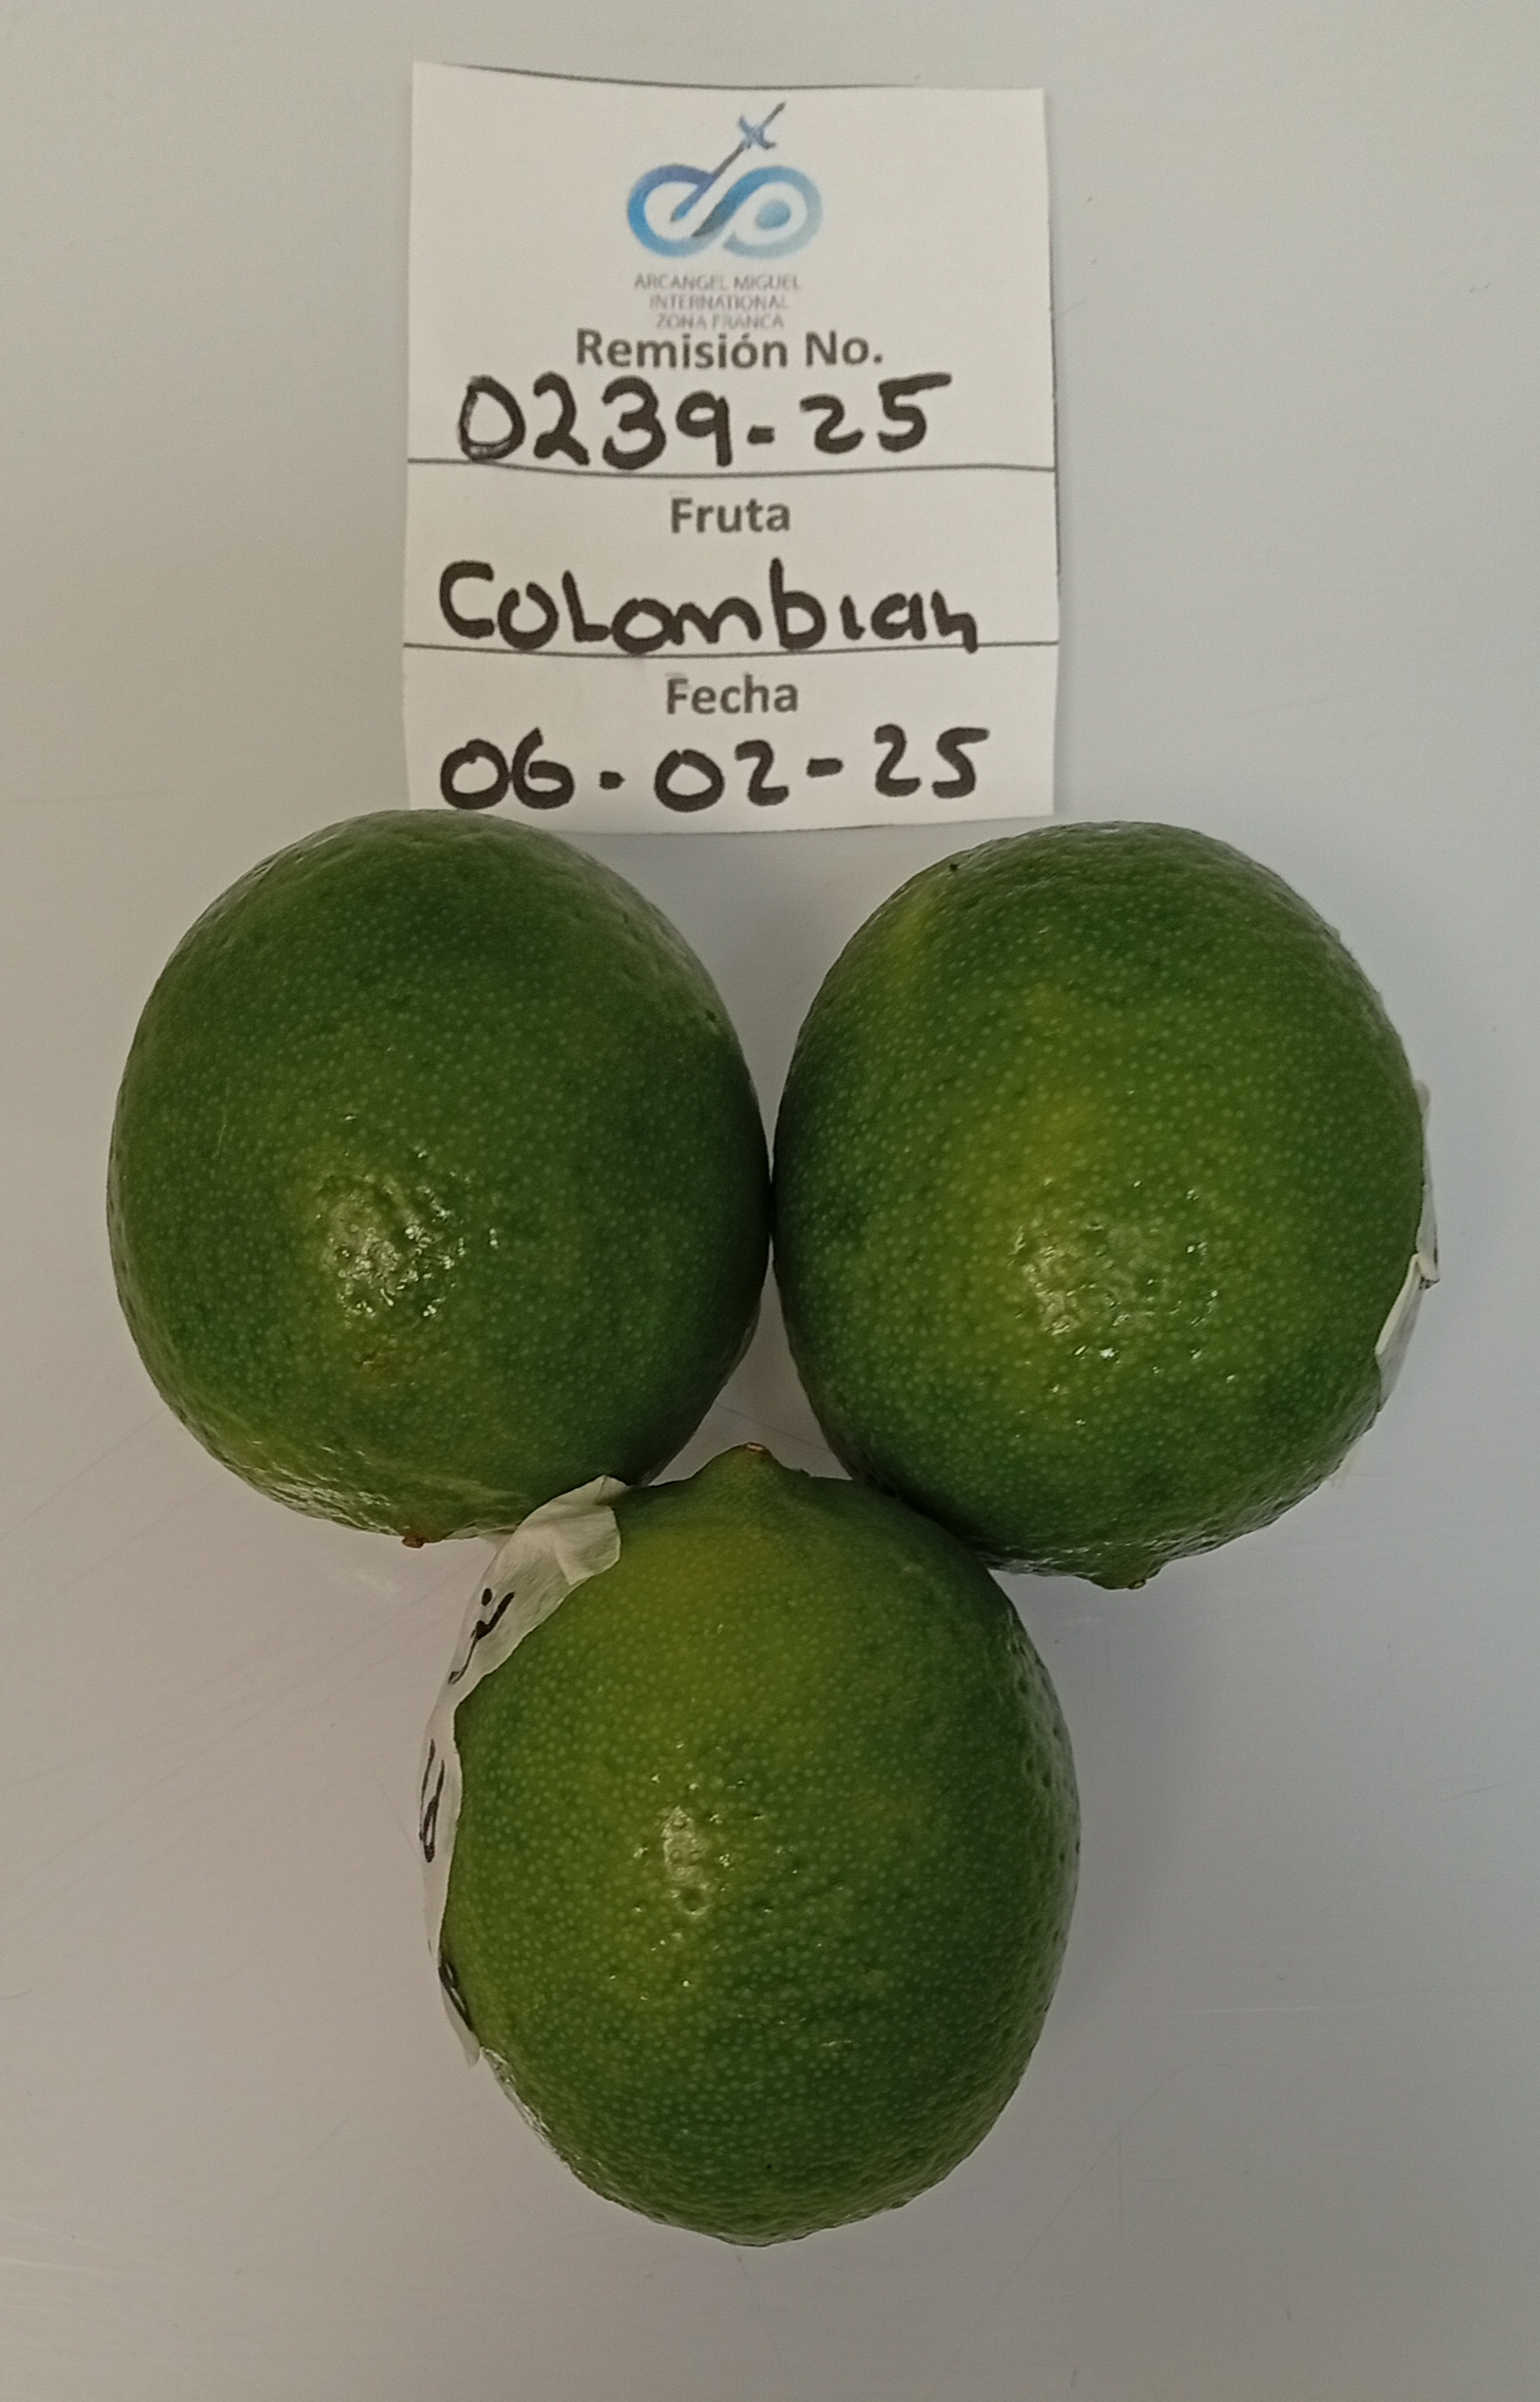 ARCANGEL MIGUEL
INTERNATIONAL
ZONA FRANCA
Remisión No.
0239-25
Fruta
Colombian
Fecha
06-02-25